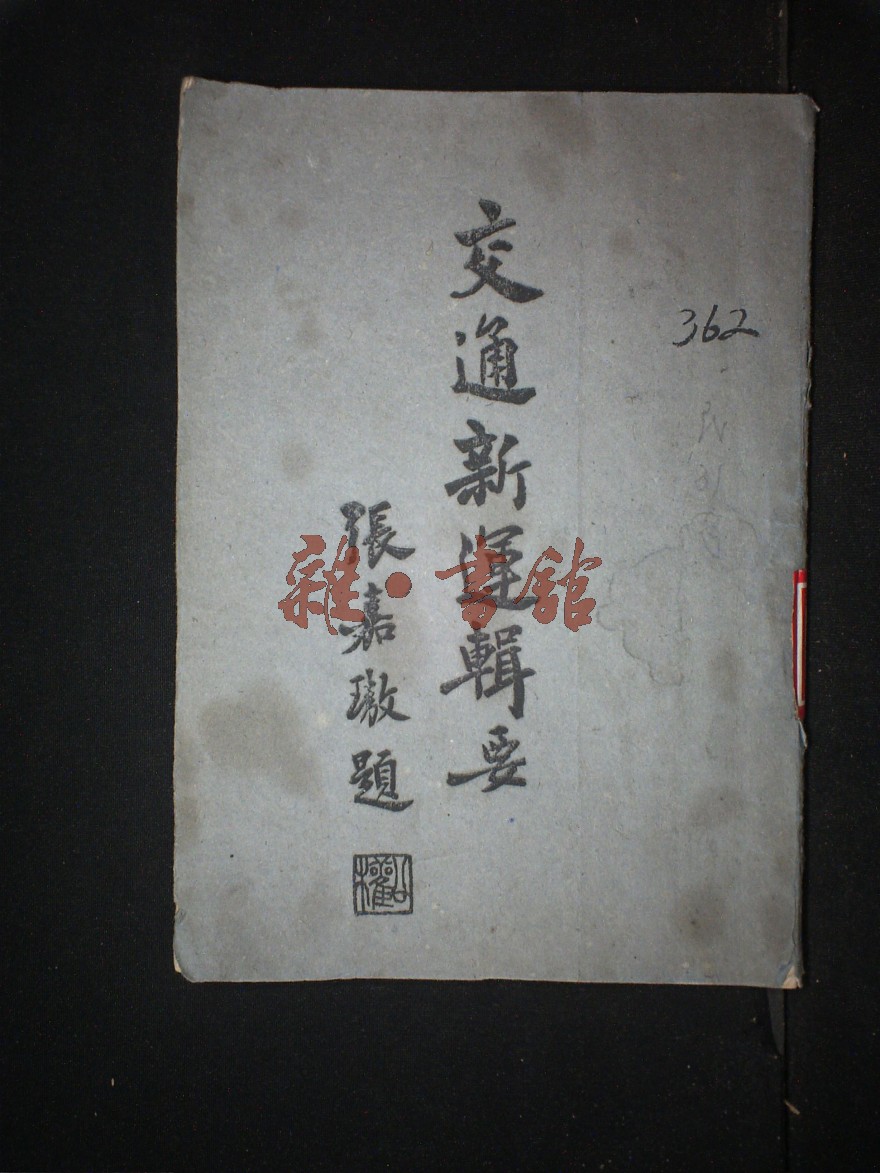 362
交通新運輯要
張嘉璈題
公權
雜·書舘